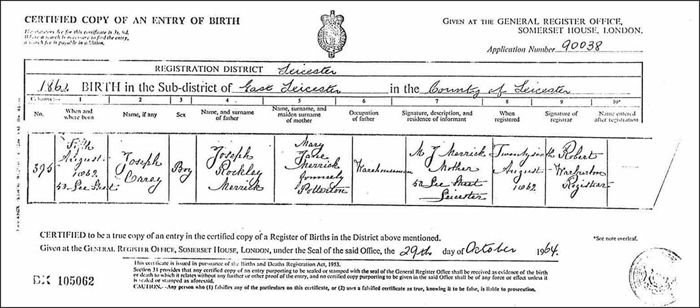 CERTIFIED COPY OF AN ENTRY OF BIRTH
GIVEN AT THE GENERAL REGISTER OFFICE,
SOMERSET HOUSE, LONDON.
The statutory fee for this certificate is 3s. 9d.
Where a search is necessary to find the entry,
a search fee is payable in addition.
Application Number 90038
REGISTRATION DISTRICT Leicester
1862 BIRTH in the Sub-district of East Leicester in the County of Leicester
Columns:— 1 2 3 4 5 6 7 8 9 10*
No. When and where born Name, if any Sex Name, and surname of father Name, surname, and maiden surname of mother Occupation of father Signature, description, and residence of informant When registered Signature of registrar Name entered after registration
Fifth August 1862 50 Lee Street
Joseph Carey
Boy
Joseph Rockley Merrick
Mary Jane Merrick formerly Potterton
Warehouseman
M J Merrick Mother 50 Lee Street Leicester
August 1862
Robert Registrar
CERTIFIED to be a true copy of an entry in the certified copy of a Register of Births in the District above mentioned.
*See note overleaf.
Given at the GENERAL REGISTER OFFICE, SOMERSET HOUSE, LONDON, under the Seal of the said Office, the 29th day of October 1964.
BX 105062
This certificate is issued in pursuance of the Births and Deaths Registration Act, 1953.
Section 34 provides that any certified copy of an entry purporting to be sealed or stamped with the seal of the General Register Office shall be received as evidence of the birth
or death to which it relates without any further or other proof of the entry, and no certified copy purporting to be given in the said Office shall be of any force or effect unless it
is sealed or stamped as aforesaid.
CAUTION.—Any person who (1) falsifies any of the particulars on this certificate, or (2) uses a falsified certificate as true, knowing it to be false, is liable to prosecution.